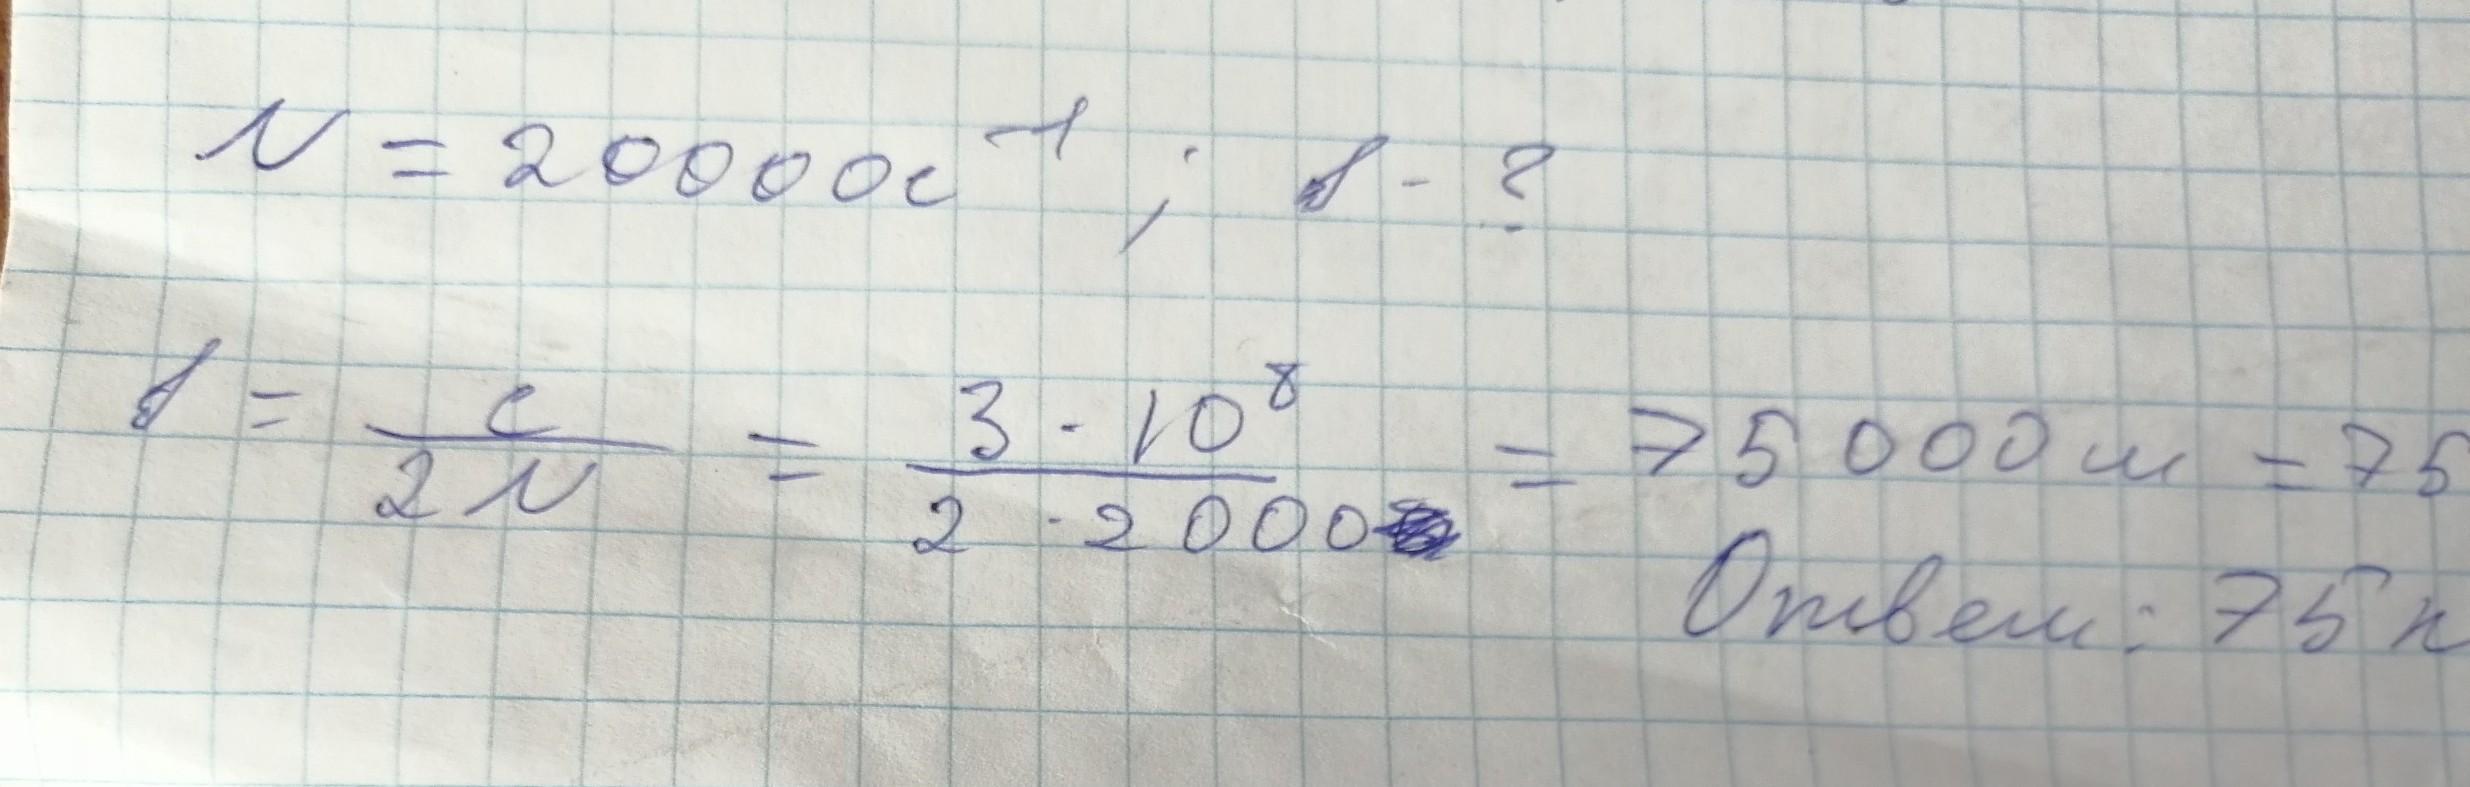 N = 20000с⁻¹; l - ?
l = c / 2N = 3 · 10⁸ / 2 · 2000 = 75000м = 75
Ответ: 75 к